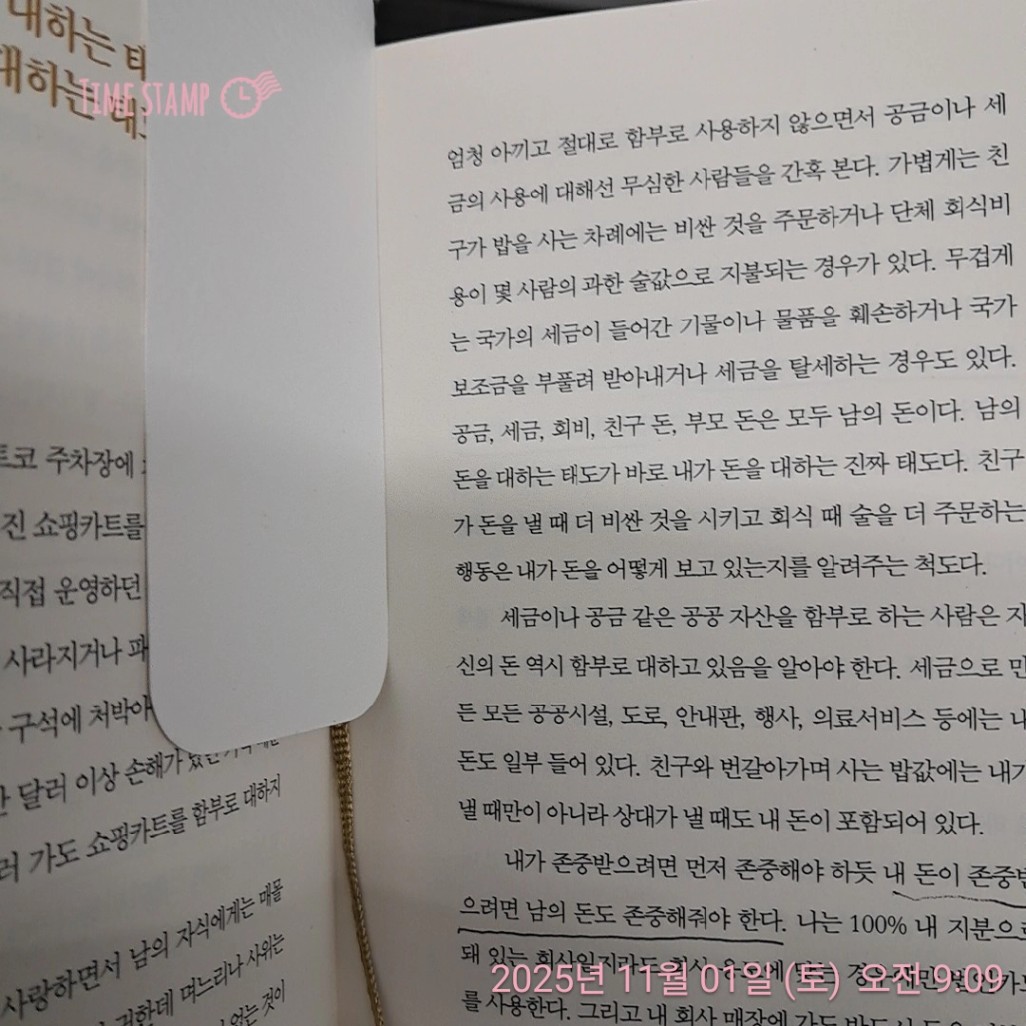 대하는 태
대하는 태
TIME STAMP
트코 주차장에
진 쇼핑카트를
직접 운영하던
사라지거나 파
구석에 처박아
달러 이상 손해가
가도 쇼핑카트를 함부로 대하지
사랑하면서 남의 자식에게는 매몰
귀한데 며느리나 사위는
없는 것이
엄청 아끼고 절대로 함부로 사용하지 않으면서 공금이나 세
금의 사용에 대해선 무심한 사람들을 간혹 본다. 가볍게는 친
구가 밥을 사는 차례에는 비싼 것을 주문하거나 단체 회식비
용이 몇 사람의 과한 술값으로 지불되는 경우가 있다. 무겁게
는 국가의 세금이 들어간 기물이나 물품을 훼손하거나 국가
보조금을 부풀려 받아내거나 세금을 탈세하는 경우도 있다.
공금, 세금, 회비, 친구 돈, 부모 돈은 모두 남의 돈이다. 남의
돈을 대하는 태도가 바로 내가 돈을 대하는 진짜 태도다. 친구
가 돈을 낼 때 더 비싼 것을 시키고 회식 때 술을 더 주문하는
행동은 내가 돈을 어떻게 보고 있는지를 알려주는 척도다.
세금이나 공금 같은 공공 자산을 함부로 하는 사람은 자
신의 돈 역시 함부로 대하고 있음을 알아야 한다. 세금으로 만
든 모든 공공시설, 도로, 안내판, 행사, 의료서비스 등에는 내
돈도 일부 들어 있다. 친구와 번갈아가며 사는 밥값에는 내가
낼 때만이 아니라 상대가 낼 때도 내 돈이 포함되어 있다.
내가 존중받으려면 먼저 존중해야 하듯 내 돈이 존중받
으려면 남의 돈도 존중해줘야 한다. 나는 100% 내 지분으로
돼 있는 회사일지라도
를 사용한다. 그리고 내 회사 매장에 가도 반드시 돈을
2025년 11월 01일 (토) 오전 9:09